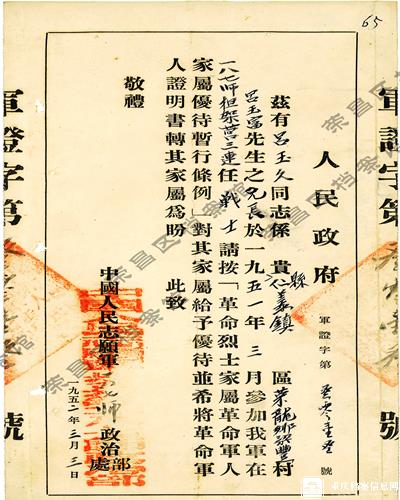 65
人民政府
軍證字第 號
茲有呂玉久同志係 貴縣仁義鎮 區 榮龍鄉 村
呂玉富先生之兄長於一九五一年三月參加我軍在
一八七師担架营三連任战士請按「革命烈士家屬革命軍人
家屬優待暫行條例」對其家屬給予優待並希將革命軍
人證明書轉其家屬為盼 此致
敬禮
中國人民志願軍 政治處部
一九五二年三月三日
軍證字第 號
軍證字第 號
荣昌区档案馆
重庆档案信息网